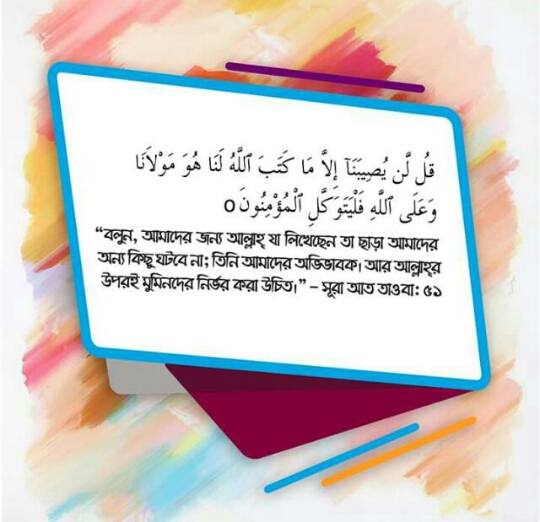 قُل لَّن يُصِيبَنَآ إِلاَّ مَا كَتَبَ ٱللَّهُ لَنَا هُوَ مَوْلاَنَا
وَعَلَى ٱللَّهِ فَلْيَتَوَكَّلِ ٱلْمُؤْمِنُونَ o
“বলুন, আমাদের জন্য আল্লাহ্ যা লিখেছেন তা ছাড়া আমাদের
অন্য কিছু ঘটবে না; তিনি আমাদের অভিভাবক। আর আল্লাহ্‌র
উপরই মুমিনদের নির্ভর করা উচিত।” – সূরা আত তাওবা: ৫১